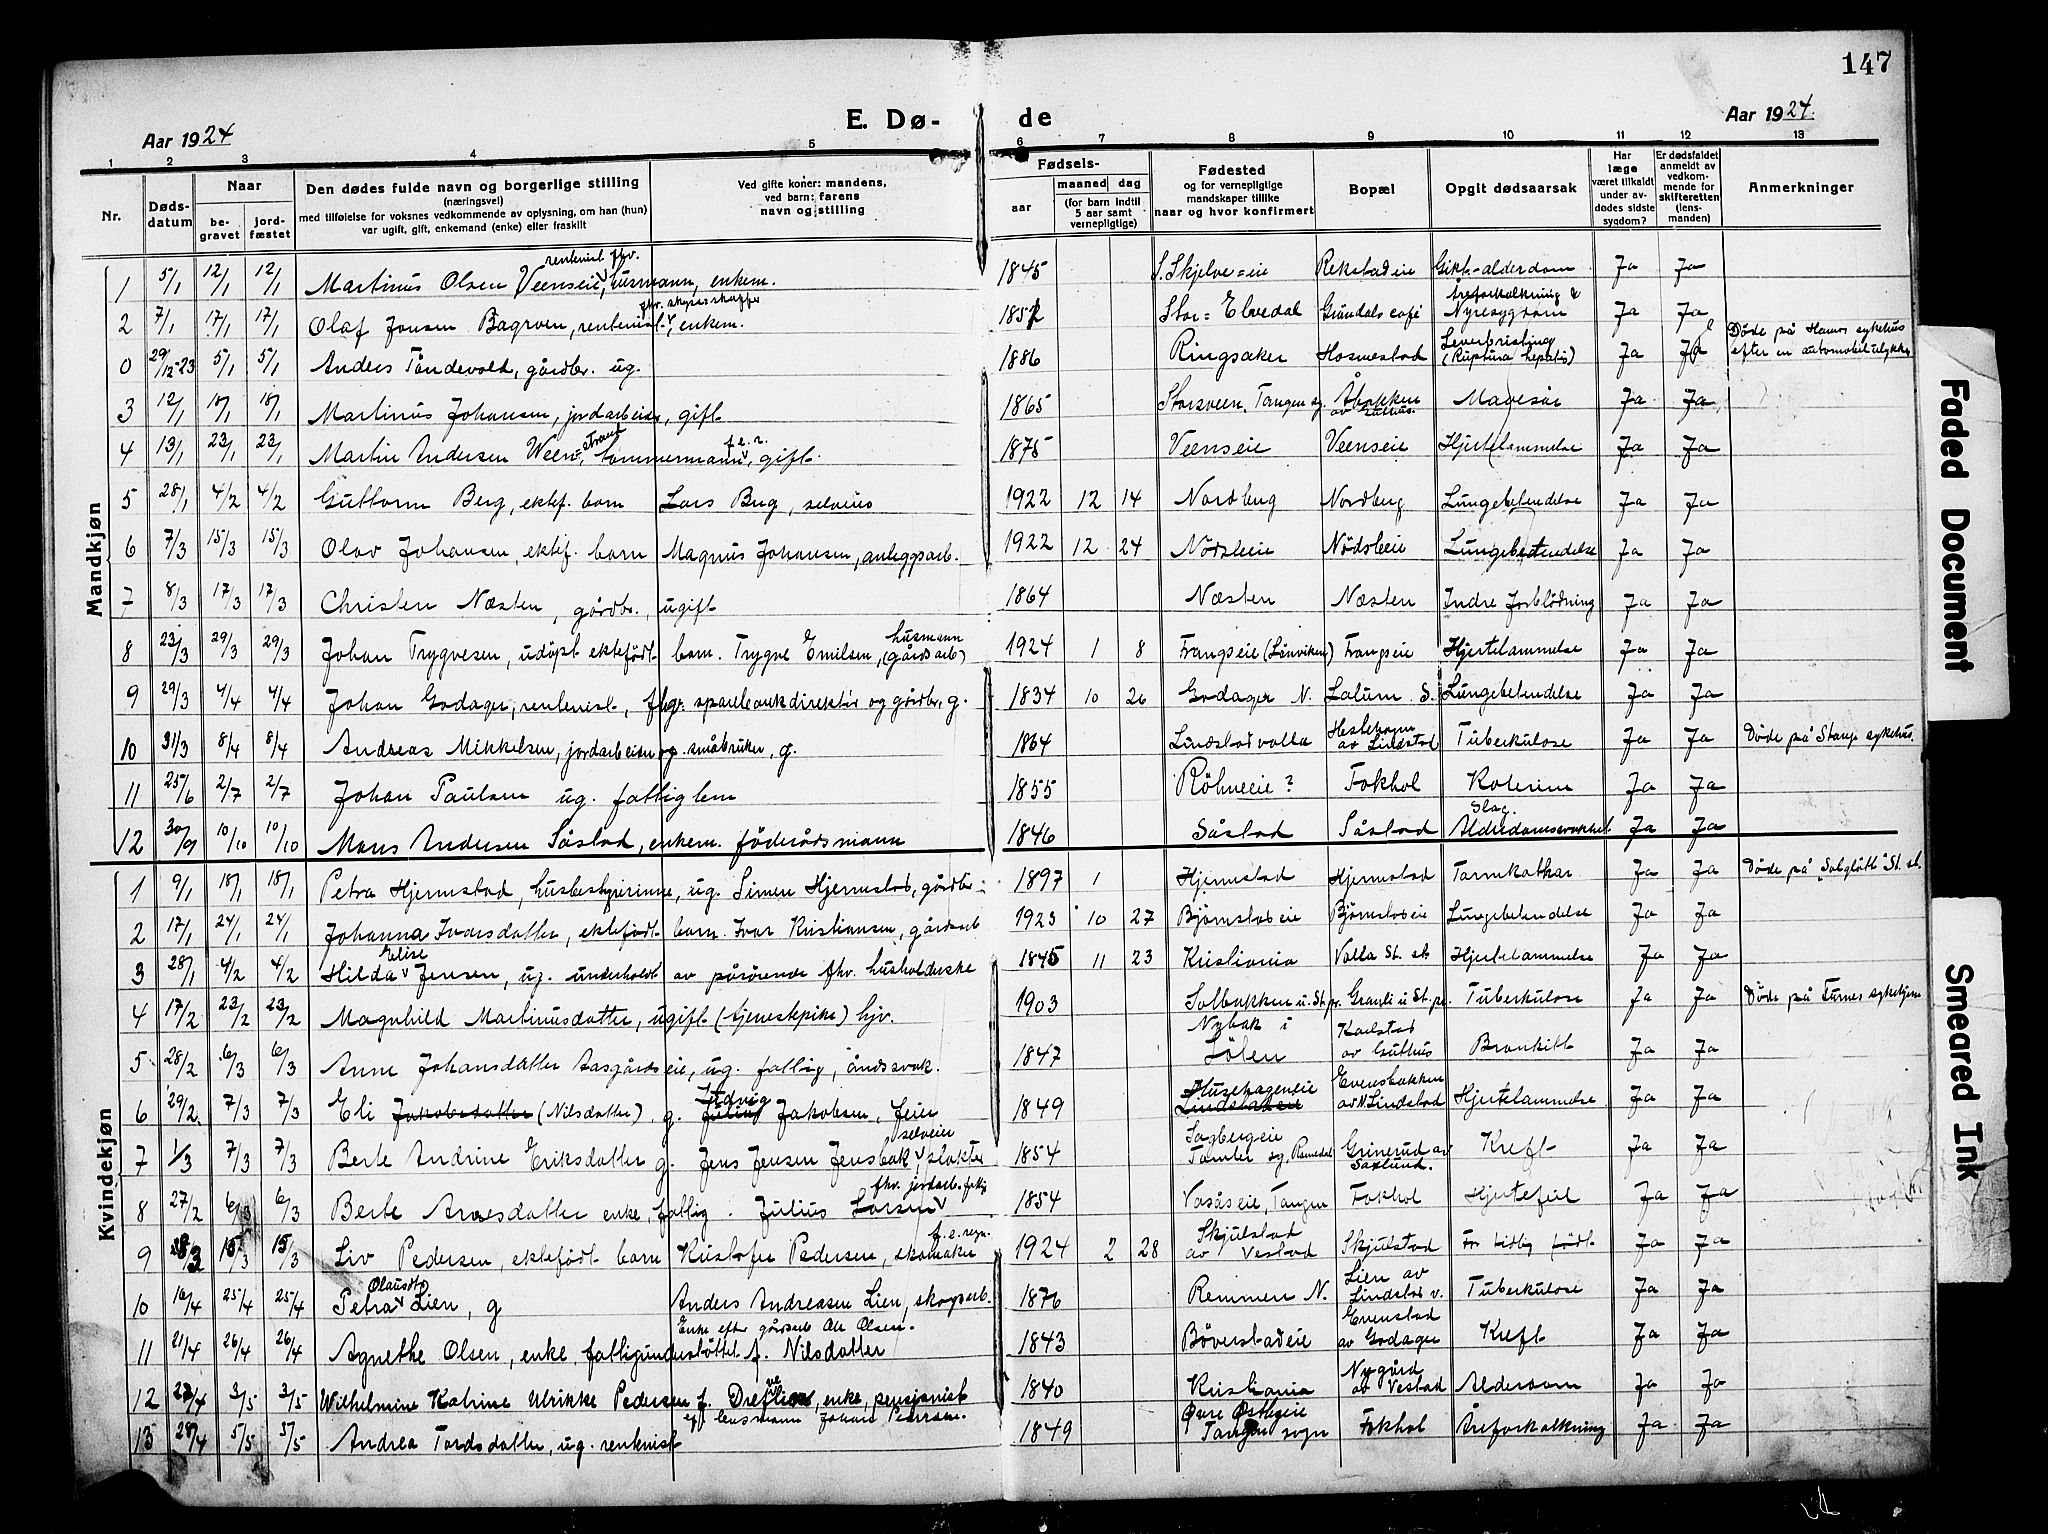 147
E. Dø-
de
Aar 1924
Aar 1924.
1 2 3 4 5 6 7 8 9 10 11 12 13
Nr.
Døds-datum
Naar
be-gravet
jord-fæstet
Den dødes fulde navn og borgerlige stilling
(næringsvei)
med tilføielse for voksnes vedkommende av oplysning, om han (hun)
var ugift, gift, enkemand (enke) eller fraskilt
Ved gifte koner: mandens,
ved barn: farens
navn og stilling
Fødsels-
aar
maaned dag
(for barn indtil
5 aar samt
vernepligtige)
Fødested
og for vernepligtige
mandskaper tillike
naar og hvor konfirmert
Bopæl
Opgit dødsaarsak
Har
læge
været tilkaldt
under av-
dødes sidste
sygdom?
Er dødsfaldet
anmeldt av
vedkom-
mende for
skifteretten
(lens-
manden)
Anmerkninger
Mandkjøn
rentenist fhv.
1 5/1 12/1 12/1 Martinus Olsen Veenseie, husmann, enkem. 1845 S. Skjelve=eie Rekstadeie Gikt-alderdom Ja Ja
fhv. skysskaffer
Åreforkalkning &
2 7/1 17/1 17/1 Olaf Jonsen Bagroen, rentenist, enkem. 1852 Stor=Elvedal Grøndals café Nyresygdom Ja Ja
0 29/12-23 5/1 5/1 Anders Tøndevold, gårdbr. ug. 1886 Ringsaker Hosmestad Leverbristning (Ruptura hepatis) Ja Ja Døde på Hamar sykehus efter en automobilulykke
3 12/1 18/1 18/1 Martinus Johansen, jordarbeider, gift 1865 Storsveen, Tangen sg. Åbakken Mavesår Ja Ja
4 13/1 23/1 23/1 Martin Andersen Ween=strand, tømmermann, f.e.r. gift. 1875 Veenseie Veenseie Hjertelammelse Ja Ja
5 28/1 4/2 4/2 Guttorm Berg, ektef. barn Lars Berg, selveier 1922 12 14 Nordberg Nordberg Lungebetendelse Ja Ja
6 7/3 15/3 15/3 Olav Johansen, ektef. barn Magnus Johansen, anleggsarb. 1922 12 24 Nødsleeie Nødsleeie Lungebetendelse Ja Ja
7 8/3 17/3 17/3 Christen Næsten, gårdbr., ugift 1864 Næsten Næsten Indre forblødning Ja Ja
8 23/3 29/3 29/3 Johan Trygvesen, udøpt ektefødt barn. Trygve Emilsen, husmann (gårdsarb) 1924 1 8 Frangseie (Lønviken) Frangseie Hjertelammelse Ja Ja
9 29/3 4/4 4/4 Johan Godager, rentenist, fhv. sparebankdirektør og gårdbr, g. 1834 10 26 Godager N. Lalum S. Lungebetendelse Ja Ja
10 31/3 8/4 8/4 Andreas Mikkelsen, jordarbeider og småbruker, g. 1864 Lindstadvolla Hestehagen av Lindstad Tuberkulose Ja Ja Døde på Stange sykehus.
11 25/6 2/7 2/7 Johan Paulsen ug. fattiglem 1855 Røhneeie? Fokhol Kolerine Ja Ja
Slag
12 30/9 10/10 10/10 Mons Andersen Såstad, enkem. føderådsmann 1846 Såstad Såstad Alderdomssvakhet Ja Ja
Kvindekjøn
1 9/1 18/1 18/1 Petra Hjermstad, husbestyrerinne, ug. Simen Hjermstad, gårdbr 1897 1 Hjermstad Hjermstad Tarmkatar Ja Ja Døde på "Solgløtt" i St. st.
2 17/1 24/1 24/1 Johanna Ivarsdatter, ektefødt barn. Ivar Kristiansen, gårdsarb 1923 10 27 Bjørnstadeie Bjørnstadeie Lungebetendelse Ja Ja
Elise
3 28/1 4/2 4/2 Hilda Jensen, ug. underholdt av pårørende fhv. husholderske 1845 11 23 Kristiania Volla St. st Hjertelammelse Ja Ja
4 17/2 23/2 23/2 Magnhild Martinusdatter, ugift (tjenestepike) hjv. 1903 Solbakken u. St. pr. Granli u St. pr. Tuberkulose Ja Ja Døde på Furnes sykehjem
5 28/2 6/3 6/3 Anne Johansdatter Aasgårdseie, ug. fattig, åndssvak. 1847 Nybak i Løten Karlstad av Guthus Bronkitt Ja Ja
6 29/2 7/3 7/3 Eli Jakobsdatter (Nilsdatter), g. Julius Ludvig Jakobsen, feier 1849 Husehageneie Evensbakken av N. Lindstad Hjertelammelse Ja Ja
selveier
7 1/3 7/3 7/3 Berte Andrine Eriksdatter g. Jens Jensen Jensbak, slakter 1854 Sagbergeie Tomter sg. Romedal Grinerud av Saxlund. Kreft Ja Ja
8 27/2 6/3 6/3 Berte Arnesdatter enke, fattig. Julius Larsen fhv. jordarb. 1854 Vasåseie, Tangen Fokhol Hjertefeil Ja Ja
9 15/3 15/3 Liv Pedersen, ektefødt barn Kristofer Pedersen, skomaker 1924 2 28 Skjulstad av Vestad Skjulstad For tidlig født Ja Ja
Olausdtr
10 16/4 25/4 25/4 Petra Lien, g Anders Andreasen Lien, skogsarb. 1876 Remmen N. Lien av Lindstad v. Tuberkulose Ja Ja
Enke efter gårdsarb Ole Olsen.
11 21/4 26/4 26/4 Agnethe Olsen, enke, fattigunderstøttet f. Nilsdatter 1843 Bøverstadeie Evenstad av Godager Kreft Ja Ja
12 27/4 3/5 3/5 Wilhelmine Katrine Ulrikke Pedersen f. enke, pensjonist 1840 Kristiania Nygård av Vestad Alderdom Ja Ja
eft. lensmann Johan Pedersen.
13 29/4 5/5 5/5 Andrea Tordsdatter, ug. rentenist 1849 Øvre Østbyeie Tangen sogn Fokhol Åreforkalkning Ja Ja
Faded Document
Smeared Ink